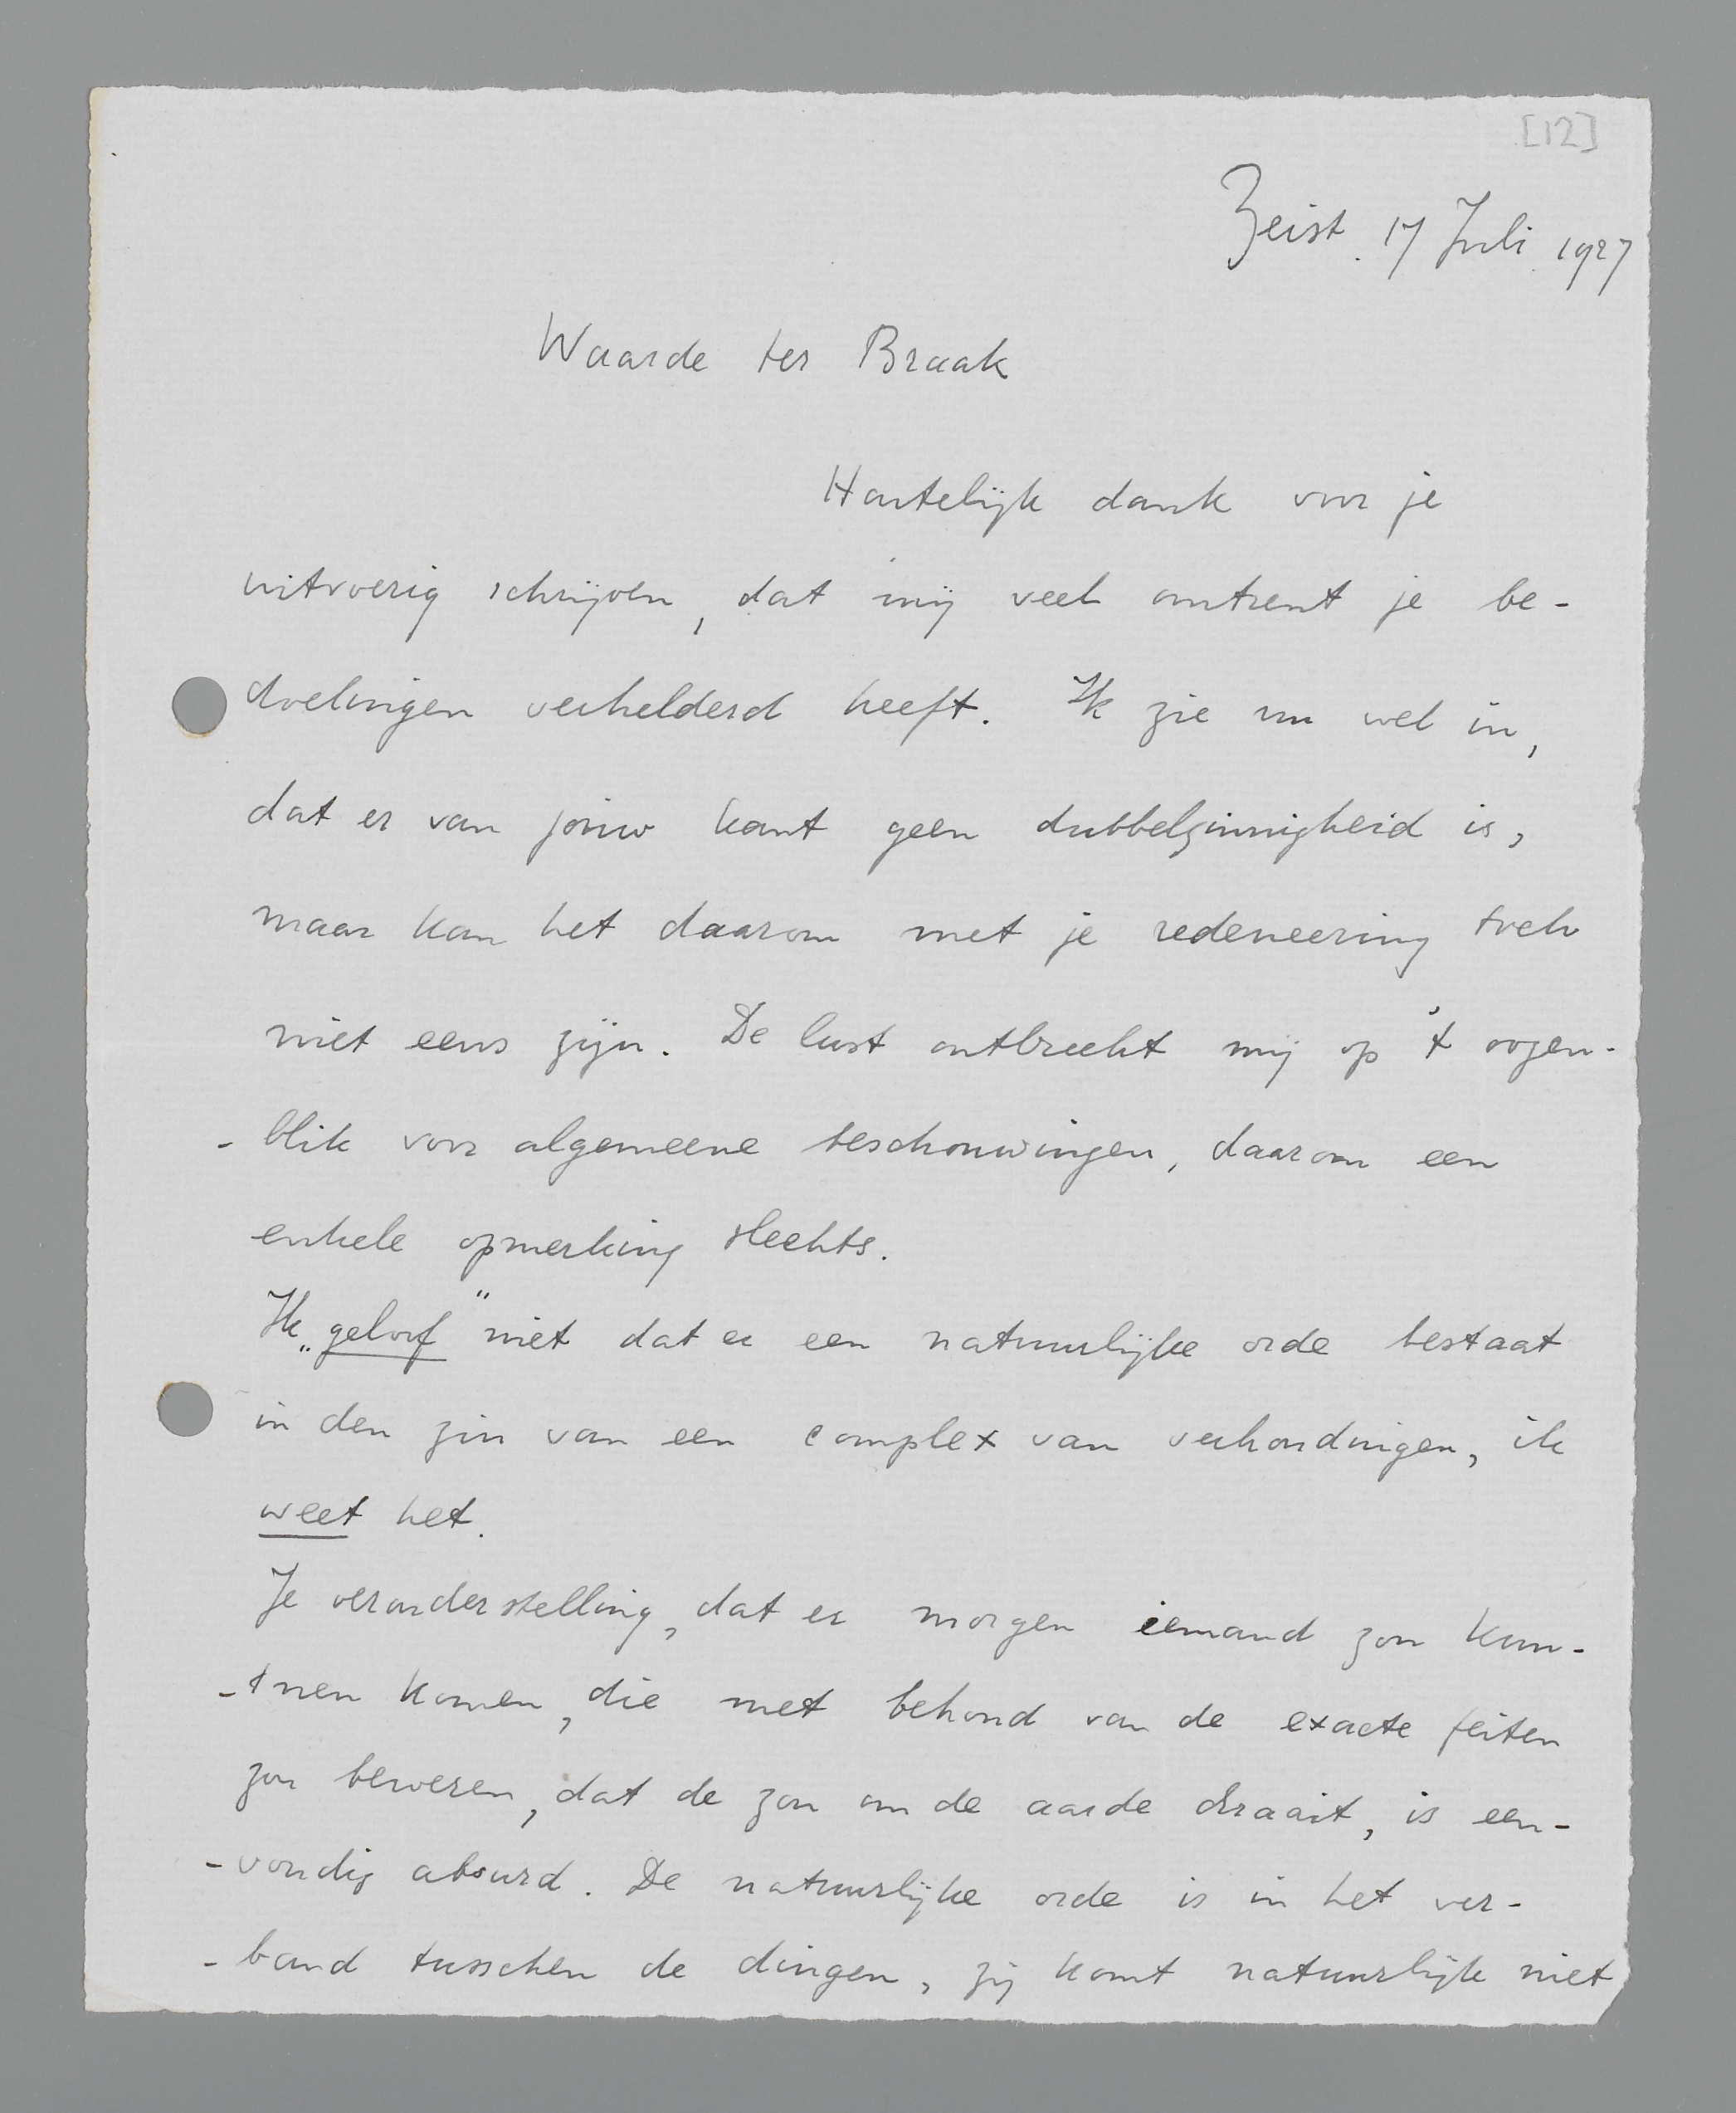 [12]
Zeist. 17 Juli 1927
Waarde ter Braak
Hartelijk dank voor je
uitvoerig schrijven, dat mij veel omtrent je be-
doelingen verhelderd heeft. Ik zie nu wel in,
dat er van jouw kant geen dubbelzinnigheid is,
maar kan het daarom met je redeneering toch
niet eens zijn. De lust ontbreekt mij op 't oogen-
-blik voor algemeene beschouwingen, daarom een
enkele opmerking slechts.
Ik „geloof" niet dat er een natuurlijke orde bestaat
in den zin van een complex van verhoudingen, ik
weet het.
Je veronderstelling, dat er morgen iemand zou kun-
-nen komen, die met behoud van de exacte feiten
zou beweren, dat de zon om de aarde draait, is een-
-voudig absurd. De natuurlijke orde is in het ver-
-band tusschen de dingen, zij komt natuurlijk niet